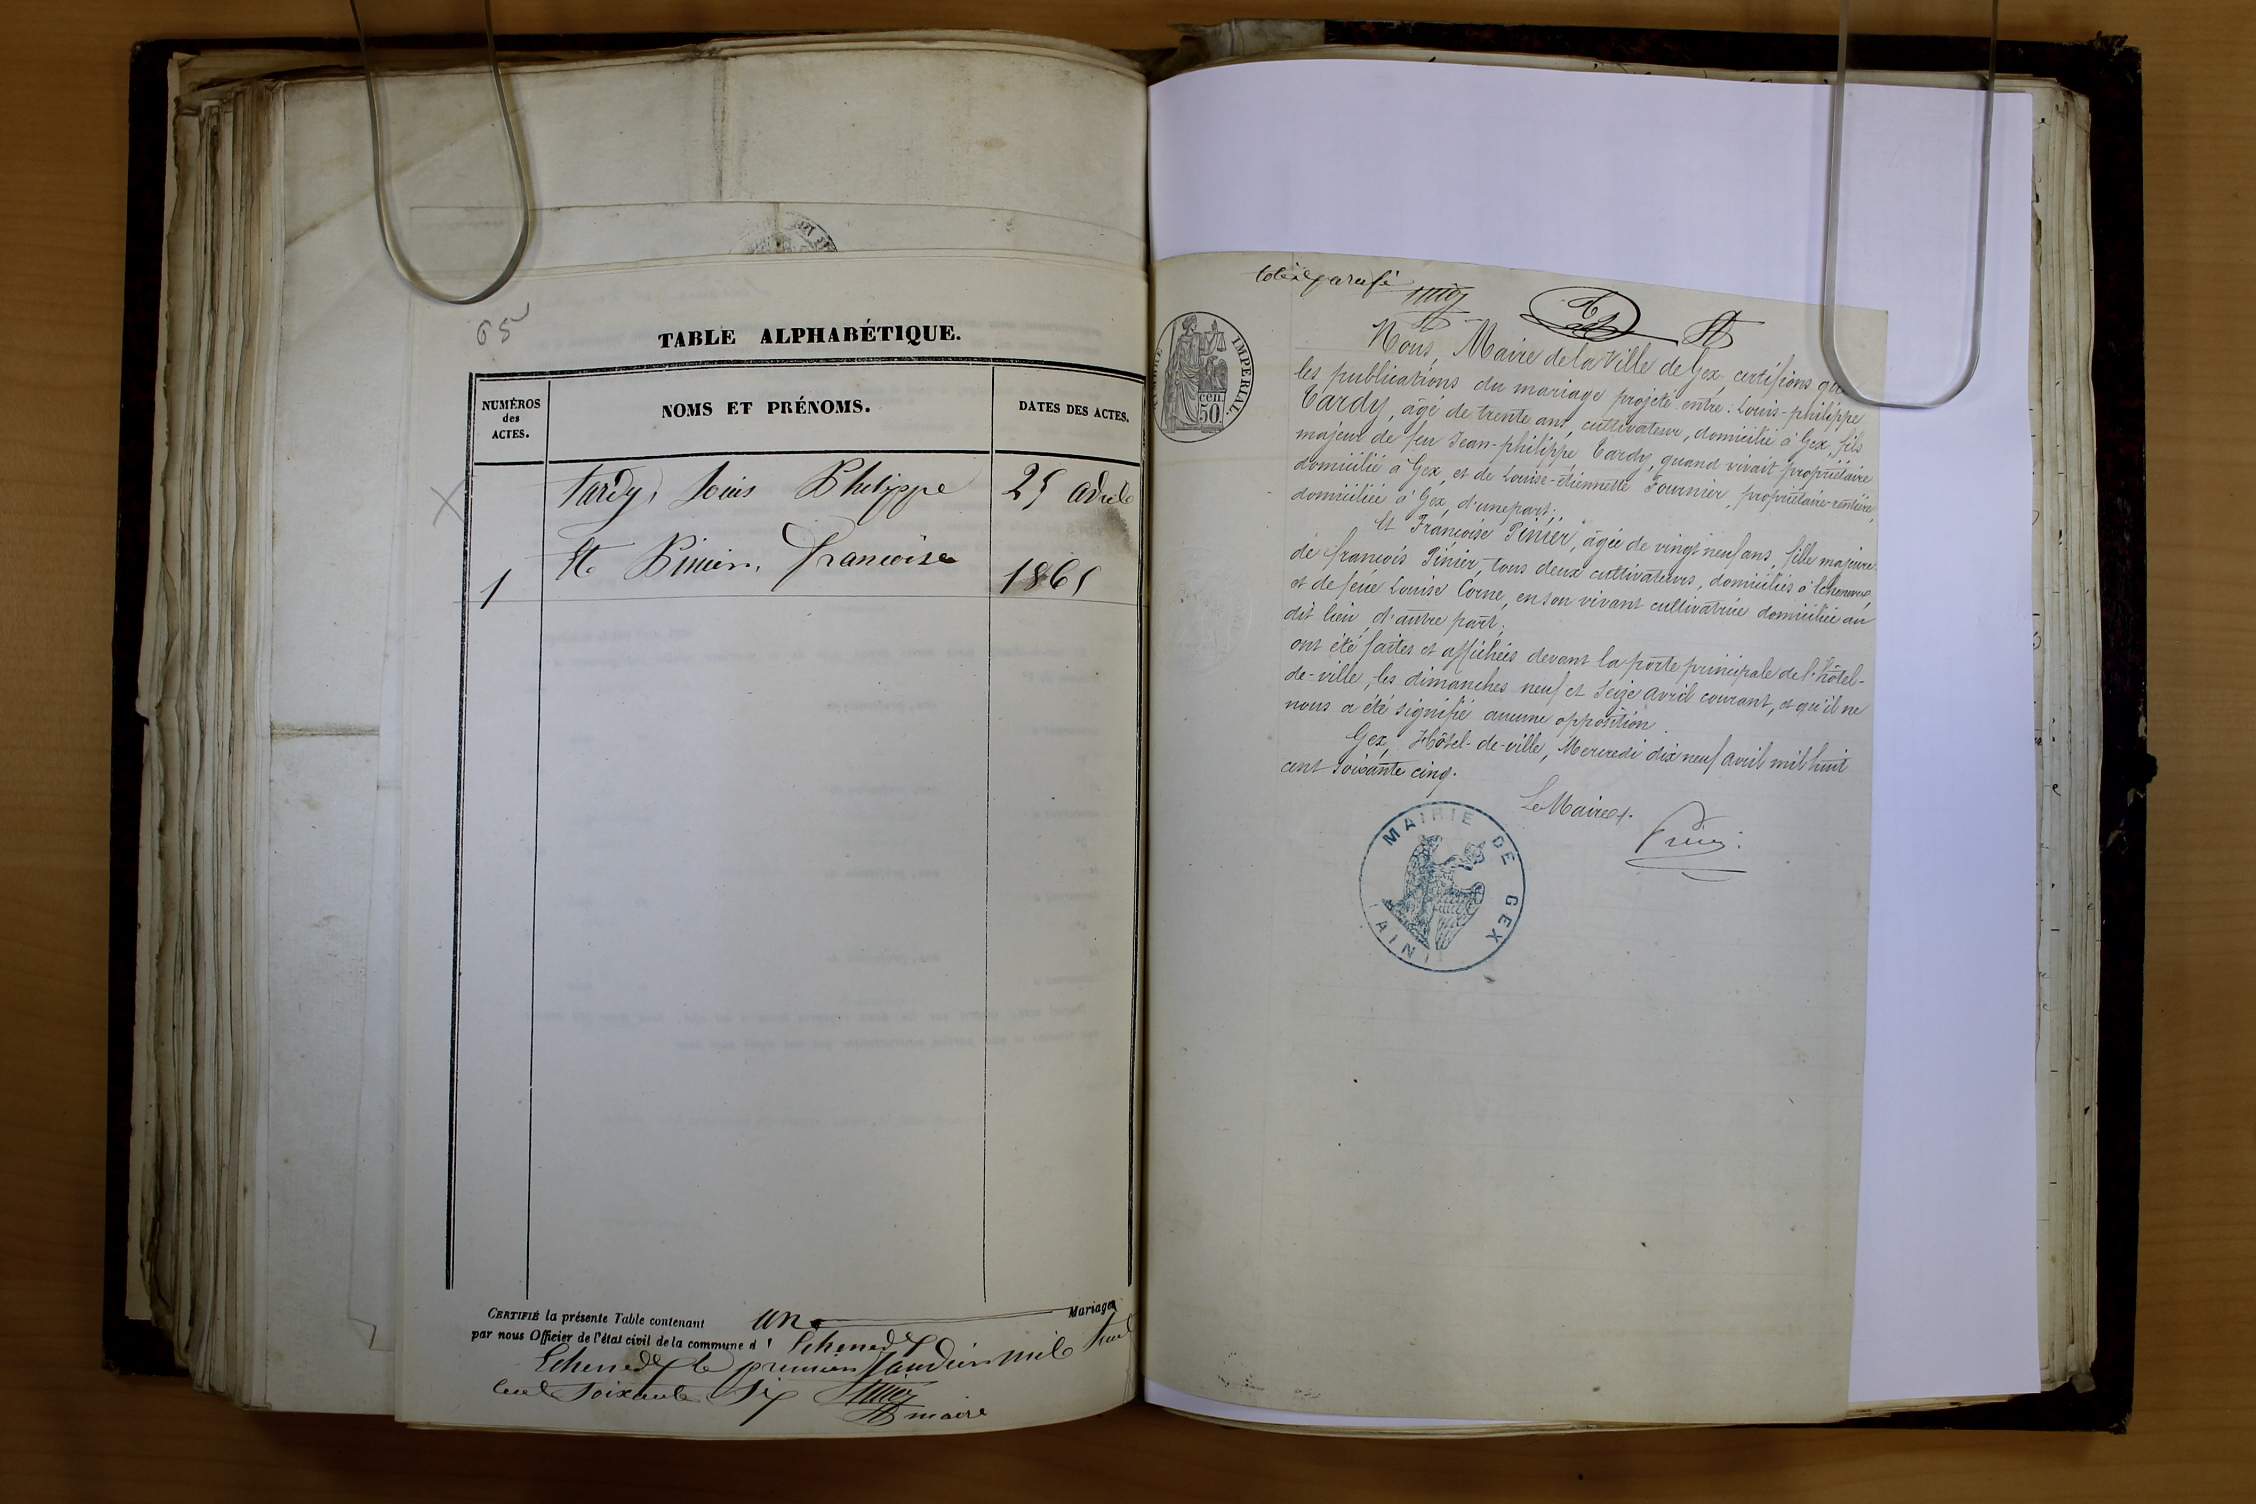 65
TABLE ALPHABÉTIQUE.
NUMÉROS
des
ACTES.
NOMS ET PRÉNOMS.
DATES DES ACTES.
Tardy, Louis Philippe
25 avril
et Pinier, Françoise
1
1865
CERTIFIÉ la présente Table contenant un Mariages
par nous Officier de l'état civil de la commune d'Echenevex
Echenevex le premier Janvier mil huit
cent Soixante Six
maire
coté & parafé
IMPÉRIAL.
50 cen.
Nous, Maire de la Ville de Gex, certifions que
les publications du mariage projeté entre: Louis-philippe
Tardy, âgé de trente ans, cultivateur, domicilié à Gex, fils
majeur de feu Jean-philippe Tardy, quand vivait propriétaire
domicilié à Gex, et de Louise-étiennette Fournier, propriétaire-rentière,
domiciliée à Gex, d'une part;
Et Françoise Pinier, âgée de vingt neuf ans, fille majeure
de françois Pinier, tous deux cultivateurs, domiciliés à Echenevex,
et de feue Louise Corne, en son vivant cultivatrice domiciliée au
dit lieu, d'autre part;
ont été faites et affichées devant la porte principale de l'hôtel-
de-ville, les dimanches neuf et Seize avril courant, et qu'il ne
nous a été signifié aucune opposition.
Gex, Hôtel-de-ville, Mercredi dix neuf avril mil huit
cent soixante cinq.
Le Maire
MAIRIE DE GEX
(AIN)